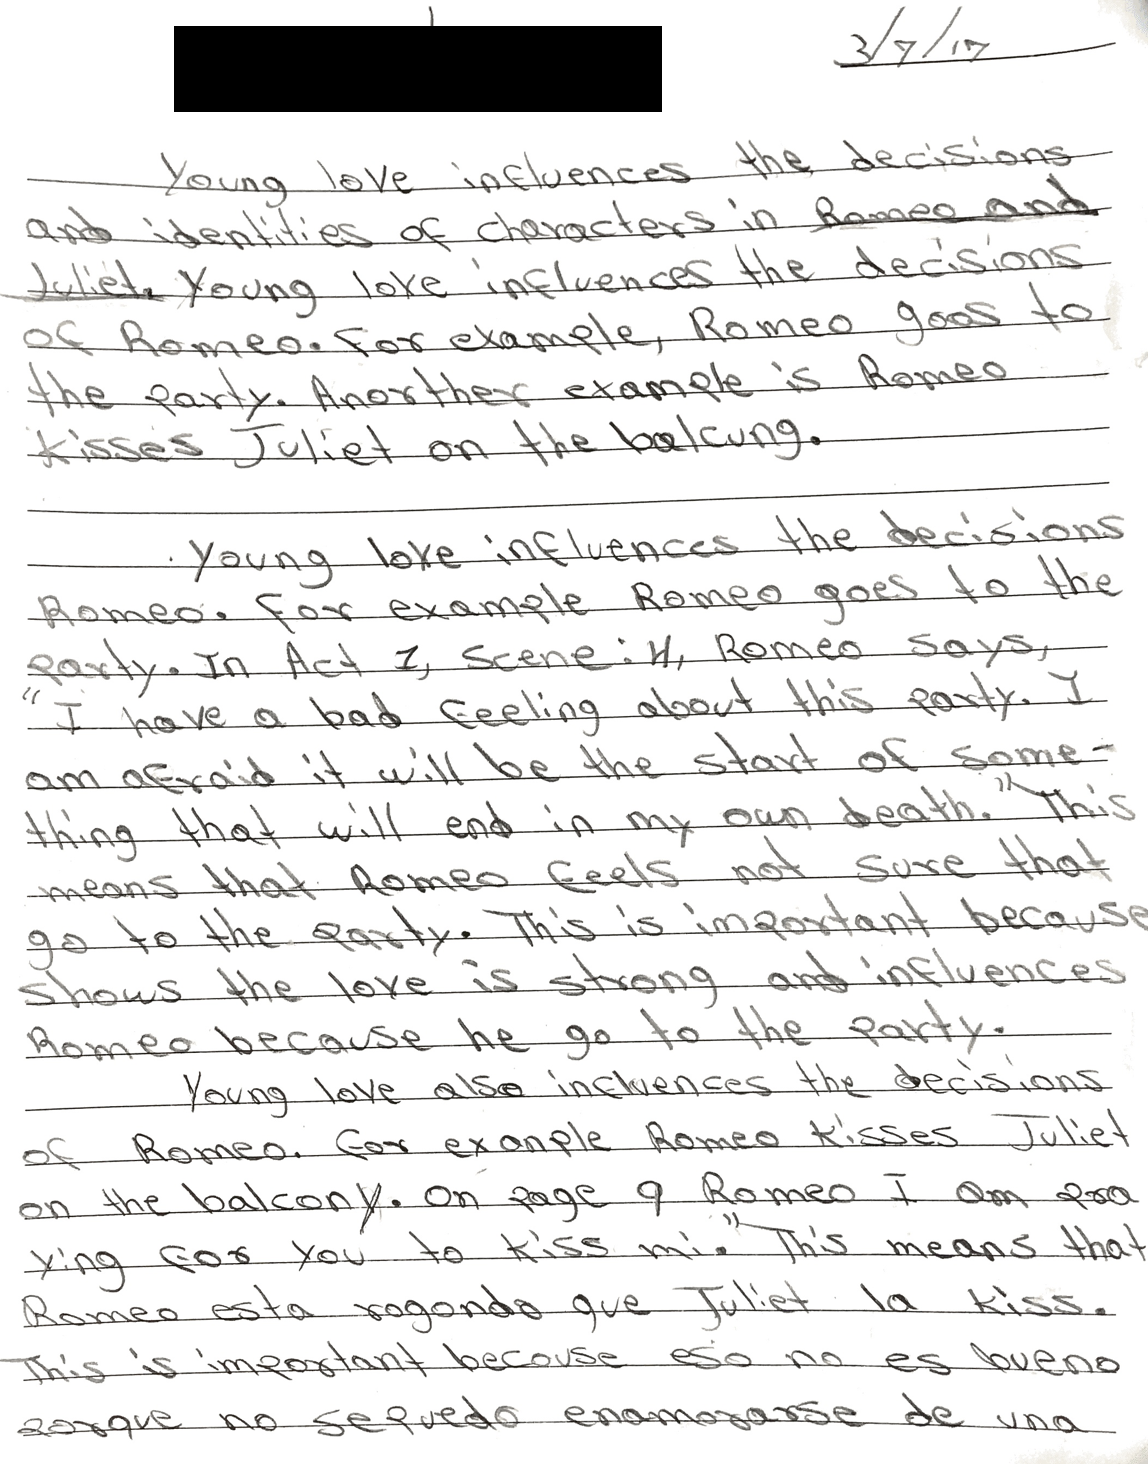 3/7/17
Young love influences the decisions
and identities of characters in Romeo and
Juliet. Young love influences the decisions
of Romeo. For example, Romeo goos to
the party. Anorther example is Romeo
kisses Juliet on the balcung.
Young love influences the decisions
Romeo. For example Romeo goes to the
party. In Act 1, Scene: 4, Romeo says,
"I have a bad feeling about this party. I
am afraid it will be the start of some-
thing that will end in my own death." This
means that Romeo feels not sure that
go to the party. This is important because
shows the love is strong and influences
Romeo because he go to the party.
Young love also influences the decisions
of Romeo. For exanple Romeo kisses Juliet
on the balcony. On page 9 Romeo I am pra
ying for you to kiss mi." This means that
Romeo esta rogondo que Juliet la kiss.
This is important becouse eso no es bueno
porque no sepuedo enamorarse de una